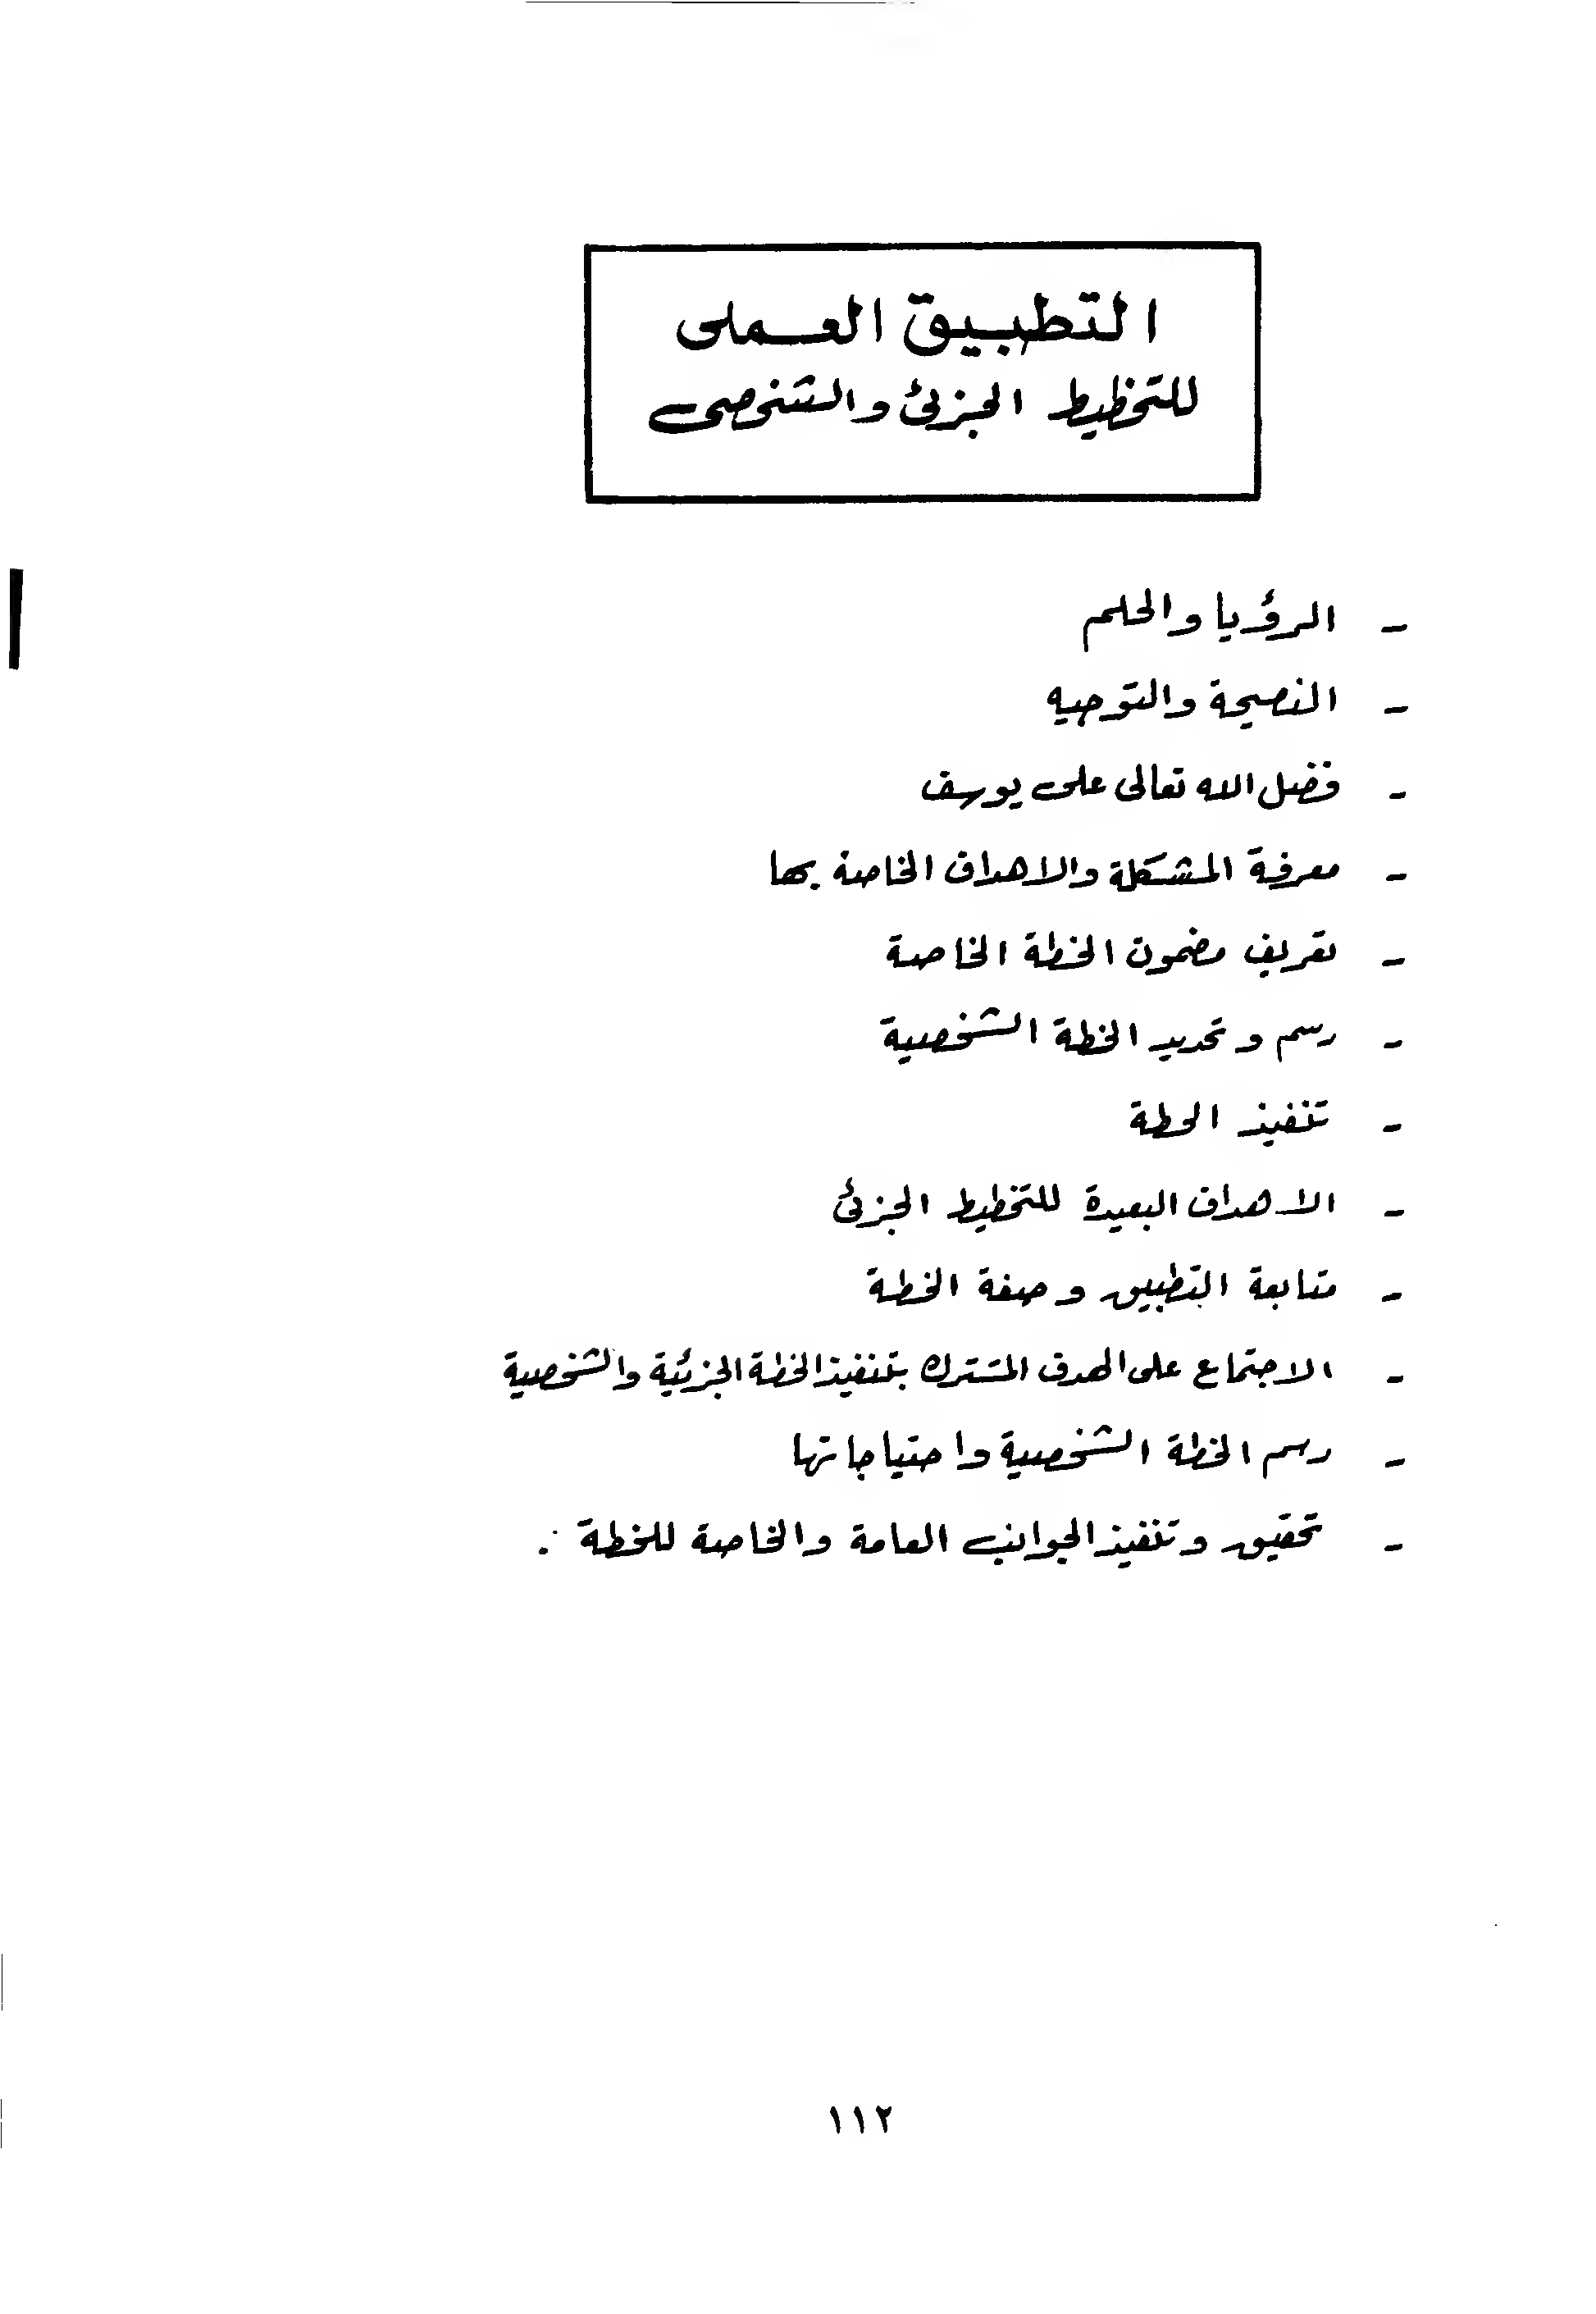 التطبيق العملى
للتخطيط الجزئ والشخصى
- الرؤيا والحلم
- النصيحة والتوجيه
- فضل الله تعالى على يوسف
- معرفة المشكلة والاهداف الخاصة بها
- تعريف مضمون الخطة الخاصة
- رسم وتحديد الخطة الشخصية
- تنفيذ الخطة
- الاهداف البعيدة للتخطيط الجزئ
- متابعة التطبيق وصفة الخطة
- الاجتماع على الهدف المشترك بتنفيذ الخطة الجزئية والشخصية
- رسم الخطة الشخصية واحتياجاتها
- تحقيق وتنفيذ الجوانب العامة والخاصة للخطة .
١١٢